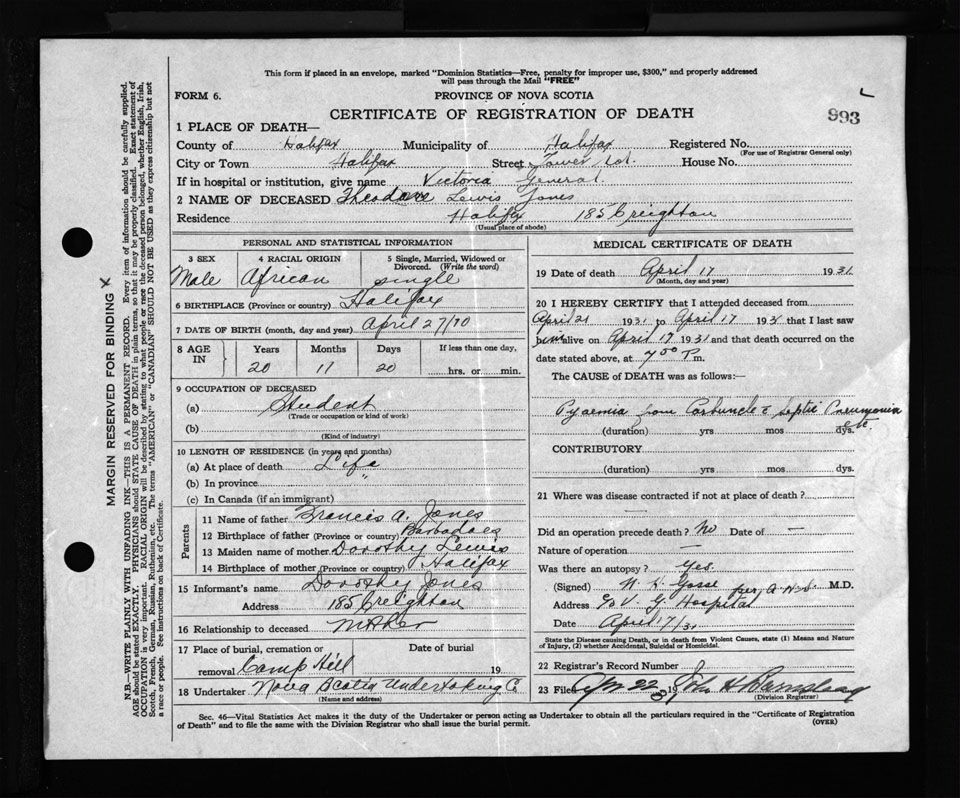 This form if placed in an envelope, marked "Dominion Statistics—Free, penalty for improper use, $300," and properly addressed
will pass through the Mail "FREE"
FORM 6. PROVINCE OF NOVA SCOTIA
CERTIFICATE OF REGISTRATION OF DEATH 993
1 PLACE OF DEATH—
County of Halifax Municipality of Halifax Registered No.
(For use of Registrar General only)
City or Town Halifax Street Tower Rd. House No.
If in hospital or institution, give name Victoria General.
2 NAME OF DECEASED Theodore Lewis Jones
Residence Halifax 185 Creighton
(Usual place of abode)
PERSONAL AND STATISTICAL INFORMATION
3 SEX 4 RACIAL ORIGIN 5 Single, Married, Widowed or
Divorced. (Write the word)
Male African single
6 BIRTHPLACE (Province or country) Halifax
7 DATE OF BIRTH (month, day and year) April 27/10
8 AGE IN Years Months Days If less than one day,
20 11 20 hrs. or min.
9 OCCUPATION OF DECEASED
(a) Student
(Trade or occupation or kind of work)
(b)
(Kind of industry)
10 LENGTH OF RESIDENCE (in years and months)
(a) At place of death Life
(b) In province "
(c) In Canada (if an immigrant)
Parents
11 Name of father Francis A. Jones
12 Birthplace of father (Province or country) Barbadoes
13 Maiden name of mother Dorothy Lewis
14 Birthplace of mother (Province or country) Halifax
15 Informant's name Dorothy Jones
Address 185 Creighton
16 Relationship to deceased Mother
17 Place of burial, cremation or Date of burial
removal Camp Hill 19
18 Undertaker Nova Scotia Undertaking Co
(Name and address)
MEDICAL CERTIFICATE OF DEATH
19 Date of death April 17 1931
(Month, day and year)
20 I HEREBY CERTIFY that I attended deceased from
April 21 1931 to April 17 1931 that I last saw
him alive on April 17 1931 and that death occurred on the
date stated above, at 7 00 P m.
The CAUSE of DEATH was as follows:
Pyaemia from Carbuncle & Septic Pneumonia
etc.
(duration) yrs mos dys.
CONTRIBUTORY
(duration) yrs mos dys.
21 Where was disease contracted if not at place of death?
—
Did an operation precede death? No Date of —
Nature of operation —
Was there an autopsy? Yes.
(Signed) N. K. Gosse per M.D.
Address V. G. Hospital
Date April 17/31
State the Disease causing Death, or in death from Violent Causes, state (1) Means and Nature
of Injury, (2) whether Accidental, Suicidal or Homicidal.
22 Registrar's Record Number
23 Filed Apr 22 19 John H
(Division Registrar)
Sec. 46—Vital Statistics Act makes it the duty of the Undertaker or person acting as Undertaker to obtain all the particulars required in the "Certificate of Registration
of Death" and to file the same with the Division Registrar who shall issue the burial permit. (OVER)
MARGIN RESERVED FOR BINDING
N.B.—WRITE PLAINLY WITH UNFADING INK—THIS IS A PERMANENT RECORD. Every item of information should be carefully supplied.
AGE should be stated EXACTLY. PHYSICIANS should STATE CAUSE OF DEATH in plain terms, so that it may be properly classified. Exact statement of
OCCUPATION is very important. RACIAL ORIGIN will be described by stating to what people or race the deceased person belonged, whether English, Irish,
Scotch, French, German, Russian, Ruthenian, etc. The terms "AMERICAN" or "CANADIAN" SHOULD NOT BE USED as they express citizenship but not
a race or people. See instructions on back of Certificate.